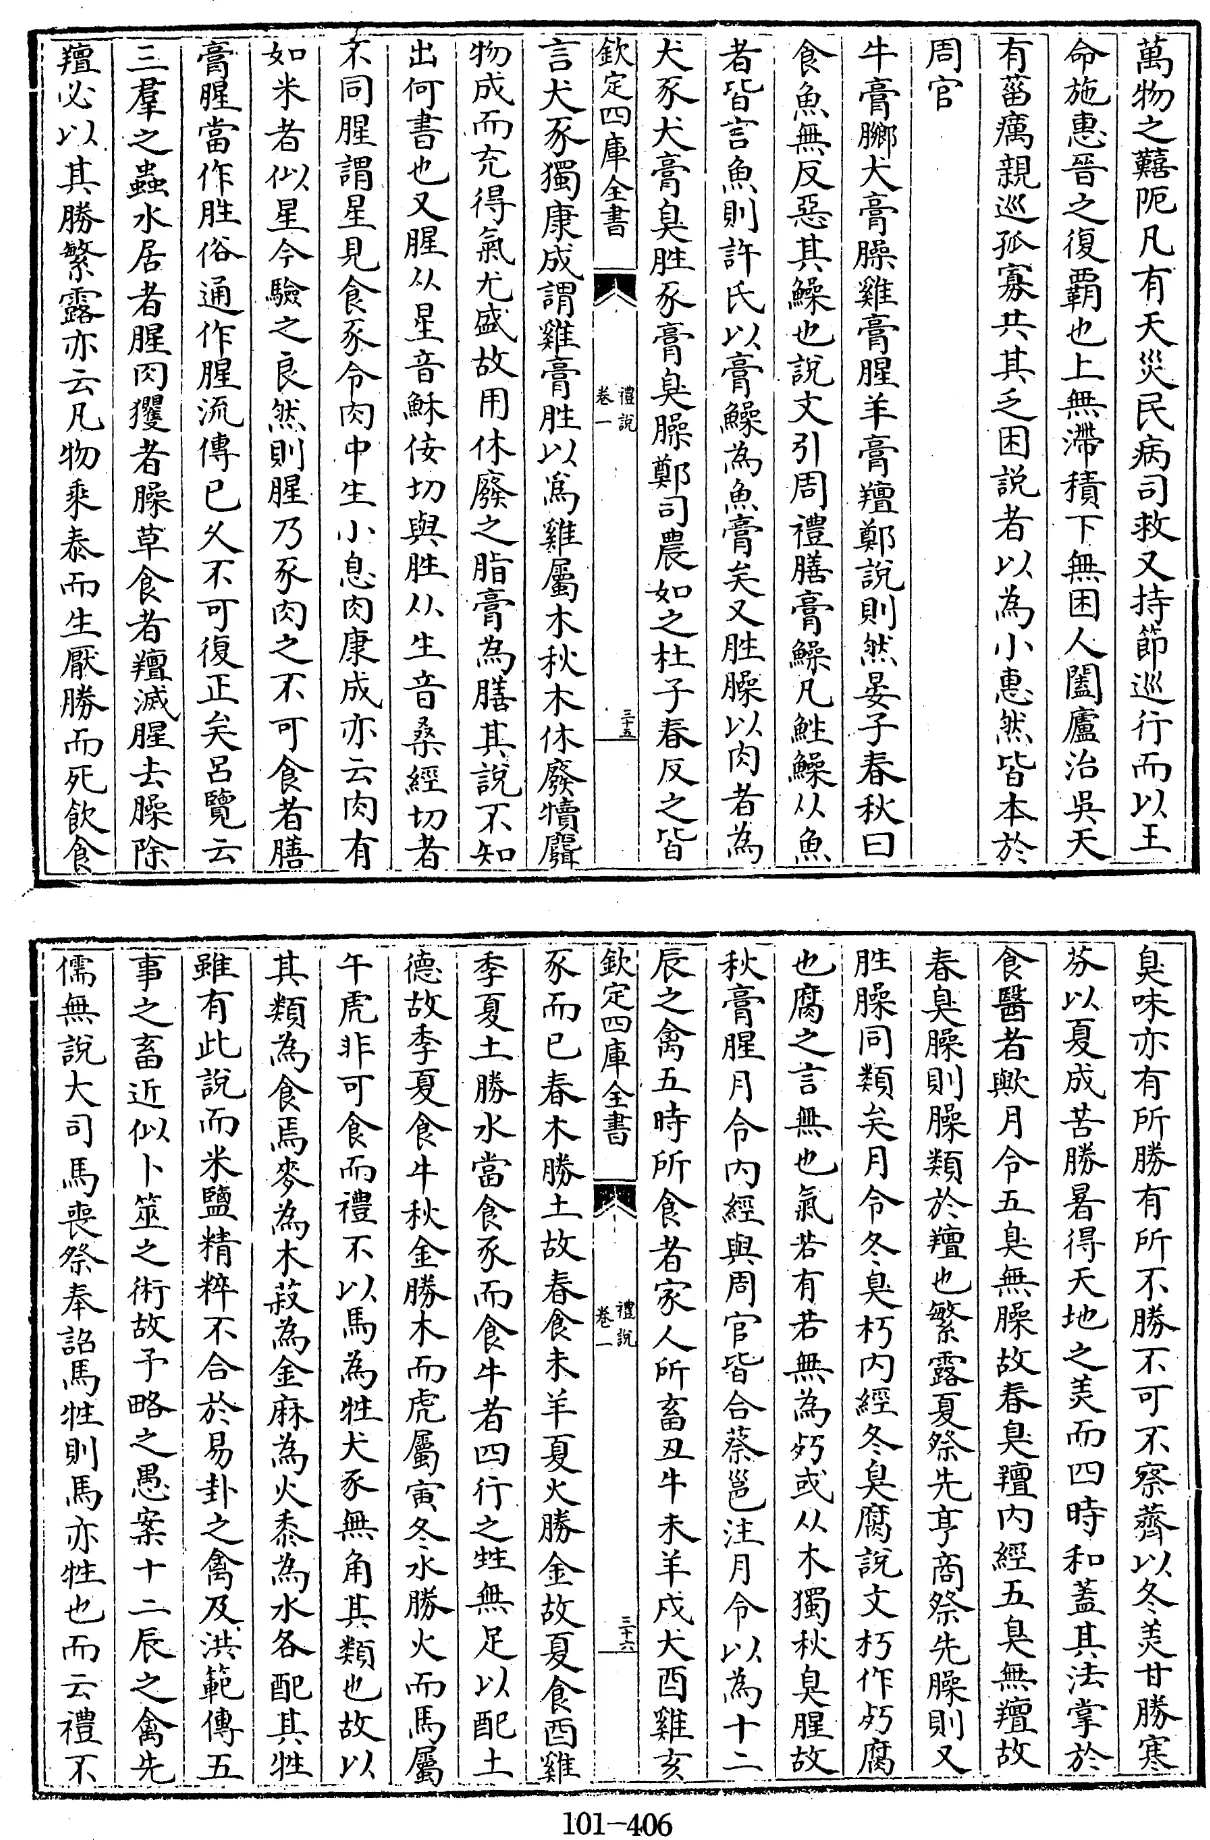 萬物之囏阨凡有天災民病司救又持節巡行而以王
命施惠晉之復霸也上無滯積下無困人闔廬治吳天
有菑癘親巡孤寡共其乏困說者以為小惠然皆本於
周官
牛膏膷犬膏臊雞膏腥羊膏羶鄭說則然晏子春秋曰
食魚無反惡其鱢也說文引周禮膳膏鱢凡鮏鱢从魚
者皆言魚則許氏以膏鱢為魚膏矣又胜臊以肉者為
犬豕犬膏臭胜豕膏臭臊鄭司農如之杜子春反之皆
欽定四庫全書
禮說
卷一
三十五
言犬豕獨康成謂雞膏胜以為雞屬木秋木休廢犢麛
物成而充得氣尤盛故用休廢之脂膏為膳其說不知
出何書也又腥从星音穌佞切與胜从生音桑經切者
不同腥謂星見食豕令肉中生小息肉康成亦云肉有
如米者似星今驗之良然則腥乃豕肉之不可食者膳
膏腥當作胜俗通作腥流傳已久不可復正矣呂覽云
三羣之蟲水居者腥肉玃者臊草食者羶滅腥去臊除
羶必以其勝繁露亦云凡物乘泰而生厭勝而死飲食
臭味亦有所勝有所不勝不可不察薺以冬美甘勝寒
芬以夏成苦勝暑得天地之美而四時和蓋其法掌於
食醫者歟月令五臭無臊故春臭羶內經五臭無羶故
春臭臊則臊類於羶也繁露夏祭先亨商祭先臊則又
胜臊同類矣月令冬臭朽內經冬臭腐說文朽作㱙腐
也腐之言無也氣若有若無為㱙或从木獨秋臭腥故
秋膏腥月令內經與周官皆合蔡邕注月令以為十二
辰之禽五時所食者家人所畜丑牛未羊戌犬酉雞亥
欽定四庫全書
禮說
卷一
三十六
豕而已春木勝土故春食未羊夏火勝金故夏食酉雞
季夏土勝水當食豕而食牛者四行之牲無足以配土
德故季夏食牛秋金勝木而虎屬寅冬水勝火而馬屬
午虎非可食而禮不以馬為牲犬豕無角其類也故以
其類為食焉麥為木菽為金麻為火黍為水各配其牲
雖有此說而米鹽精粹不合於易卦之禽及洪範傳五
事之畜近似卜筮之術故予略之愚案十二辰之禽先
儒無說大司馬喪祭奉詔馬牲則馬亦牲也而云禮不
101-406